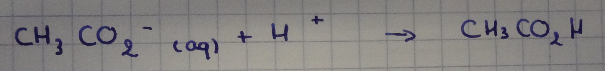 CH₃CO₂⁻ (aq) + H⁺ → CH₃CO₂H